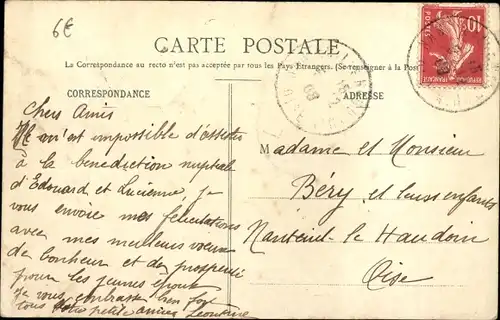 6€
CARTE POSTALE
La Correspondance au recto n'est pas acceptée par tous les Pays Etrangers. (Se renseigner à la Poste
CORRESPONDANCE
ADRESSE
Chers Amis
Il m'est impossible d'assister
à la bénédiction nuptiale
d'Edouard et Lucienne je
vous envoie mes félicitations
avec mes meilleurs vœux
de bonheur et de prospérité
pour les jeunes époux
je vous embrasse bien fort
tous votre petite amie Léontine
Madame et Monsieur
Béry et leurs enfants
Nanteuil-le Haudoin
Oise
10
POSTES